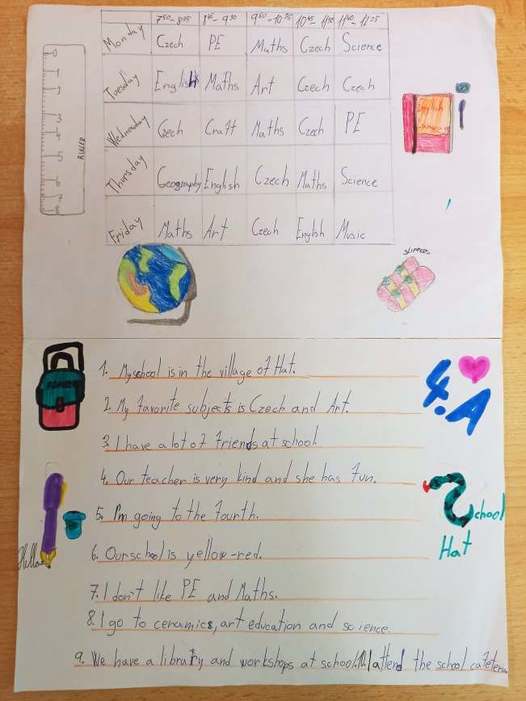 7⁵⁰-8³⁵ 9⁵⁰-10³⁵ 10⁴⁵-11³⁰
Monday Czech PE Maths Czech Science
Tuesday English Maths Art Czech Czech
Wednesday Czech Craft Maths Czech PE
Thursday Geography English Czech Maths Science
Friday Maths Art Czech English Music
RULER
English
science
1. My school is in the village of Hat.
2. My favorite subjects is Czech and Art.
3. I have a lot of friends at school
4. Our teacher is very kind and she has fun.
5. I'm going to the fourth.
6. Our school is yellow-red.
7. I don't like PE and Maths.
8. I go to ceramics, art education and science.
9. We have a library and workshops at school. I attend the school cafeteria
4.A
School
Hat
Hello